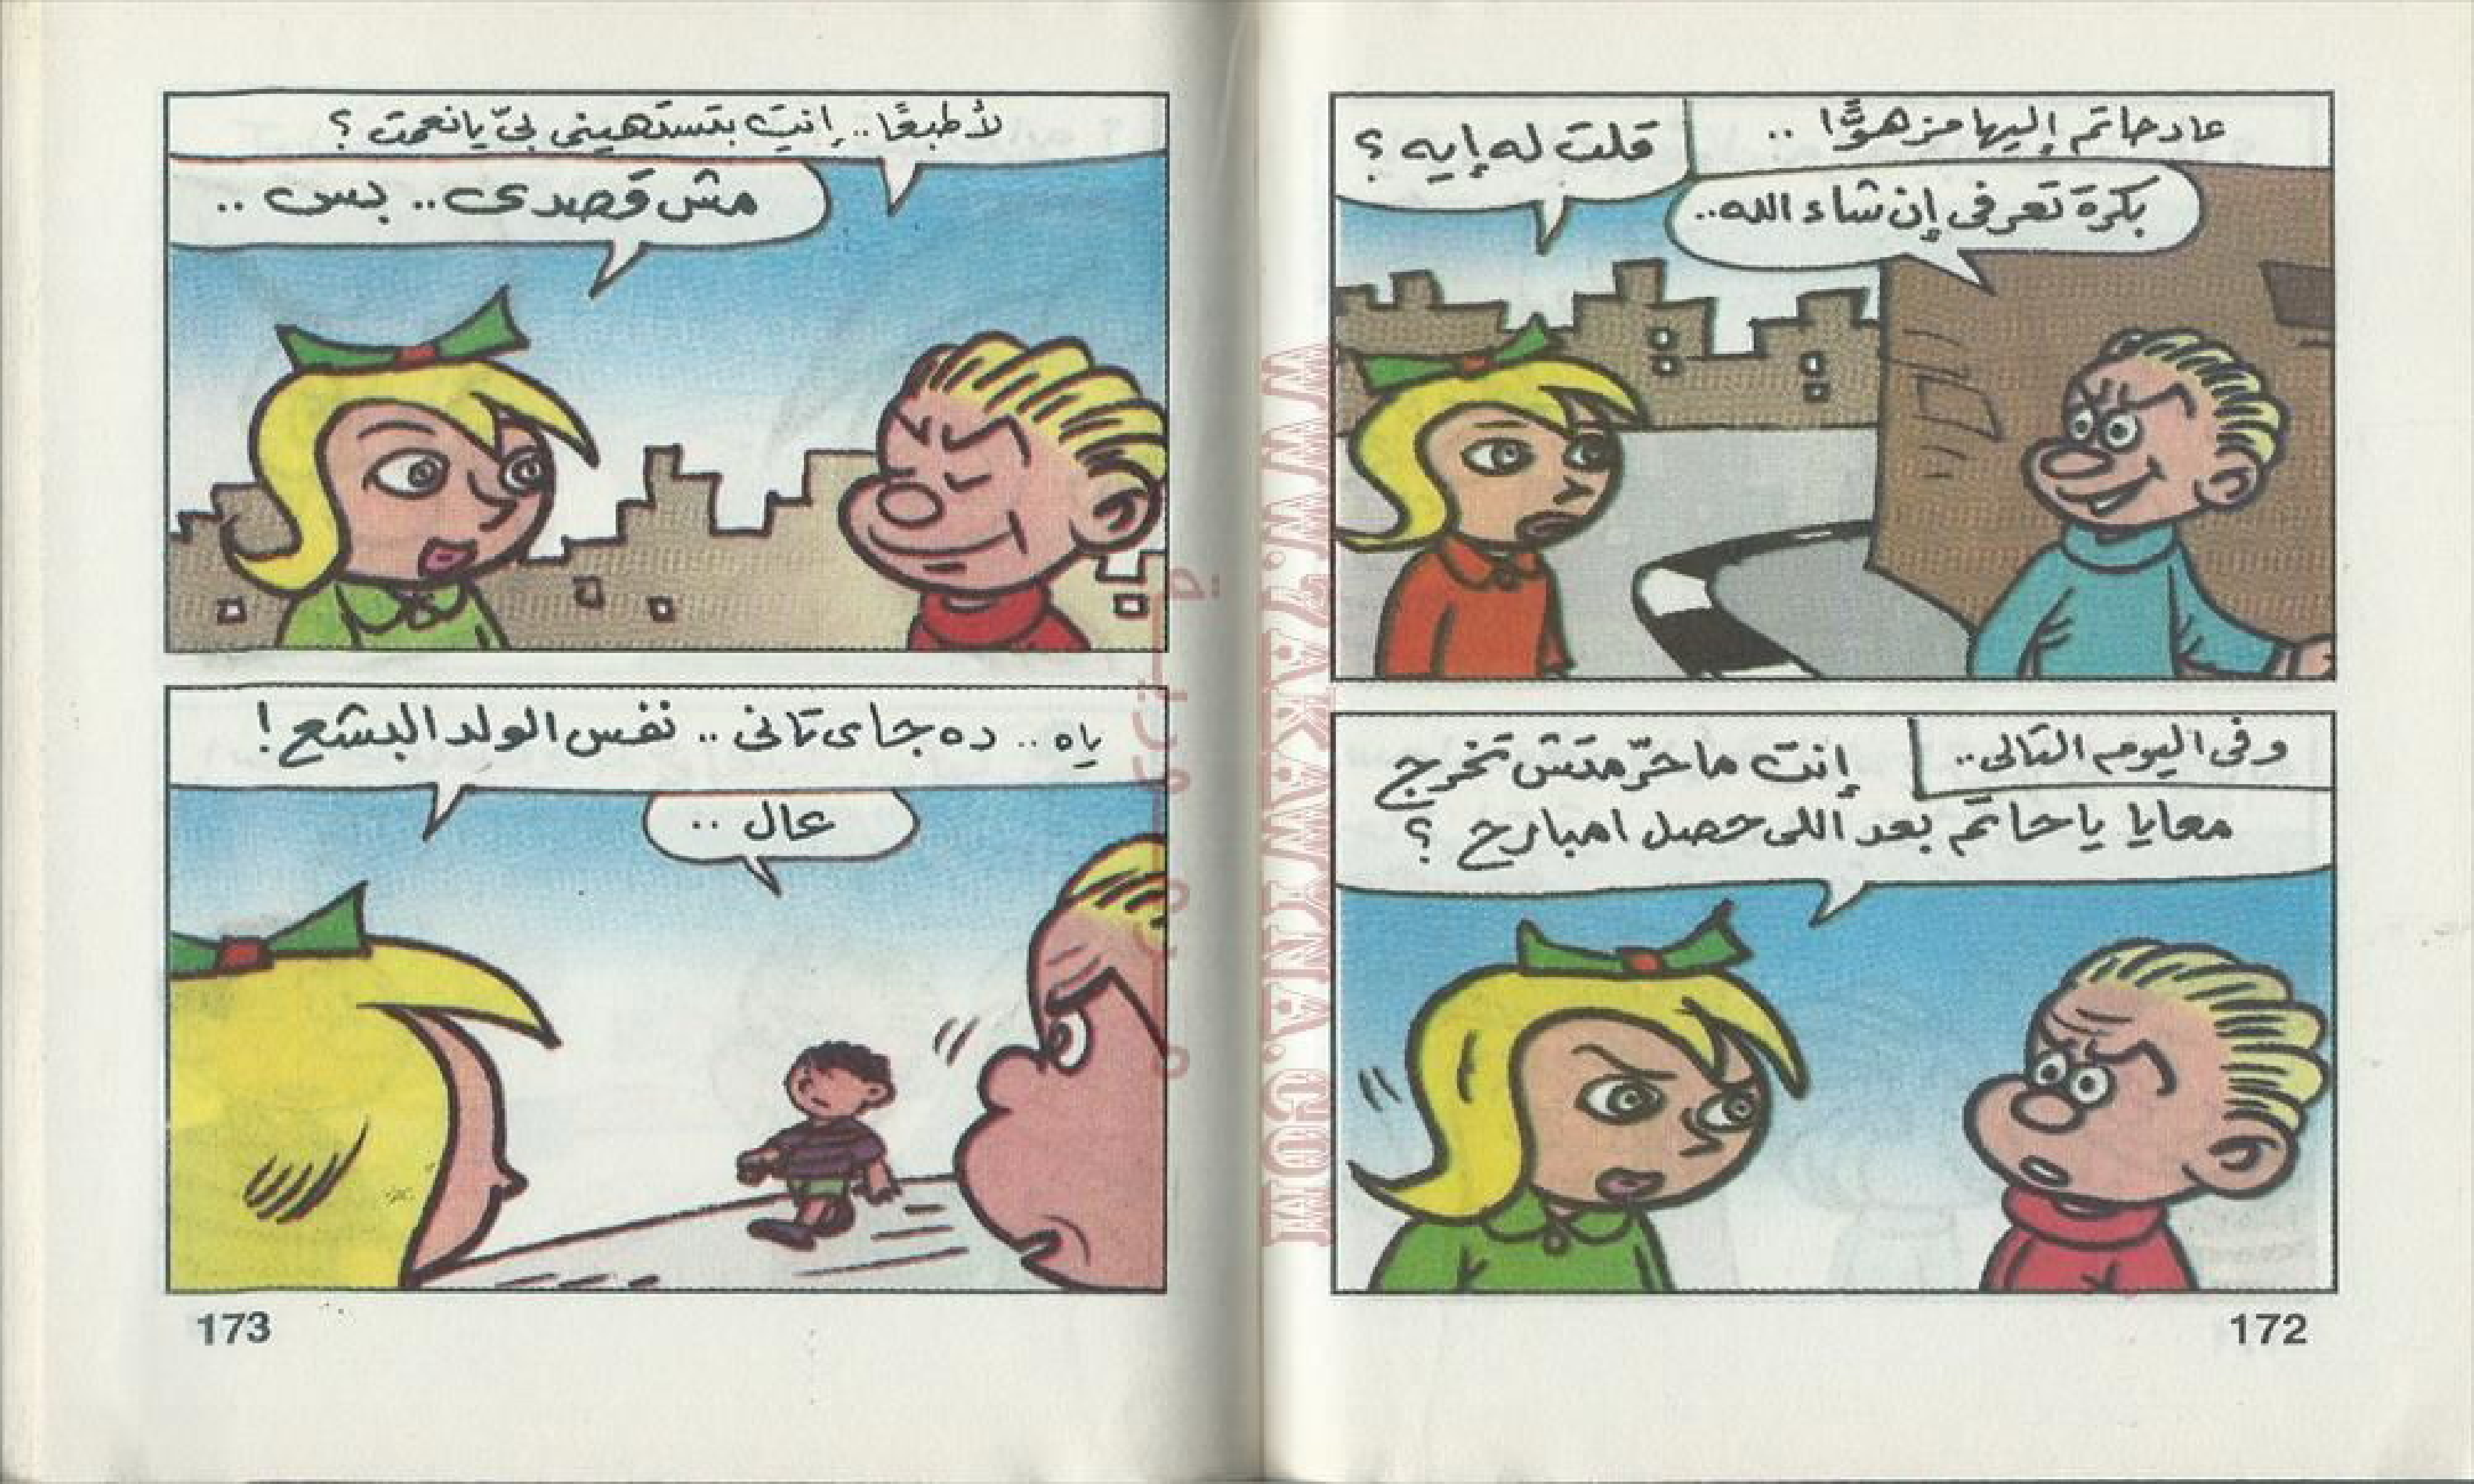 عاد حاتم إليها مزهوًّا ..
قلت له إيه ؟
بكرة تعرفى إن شاء الله..
وفى اليوم التالى..
إنت ما حرّمتش تخرج
معايا يا حاتم بعد اللى حصل امبارح ؟
172
لأ طبعًا.. إنتِ بتستهينى بىّ يا نعمت ؟
مش قصدى.. بس ..
ياه .. ده جاى تانى .. نفس الولد البشع !
عال ..
173
WWW.ZAKAWTNA.COM